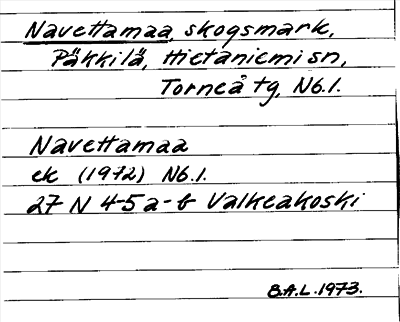 Navettamaa, skogsmark,
Päkkilä, Hietaniemi sn,
Torneå tg, Nb.l.
Navettamaa
ek (1972) Nb.l.
27 N 4-5 a-b Valkeakoski
B.A.L. 1973.